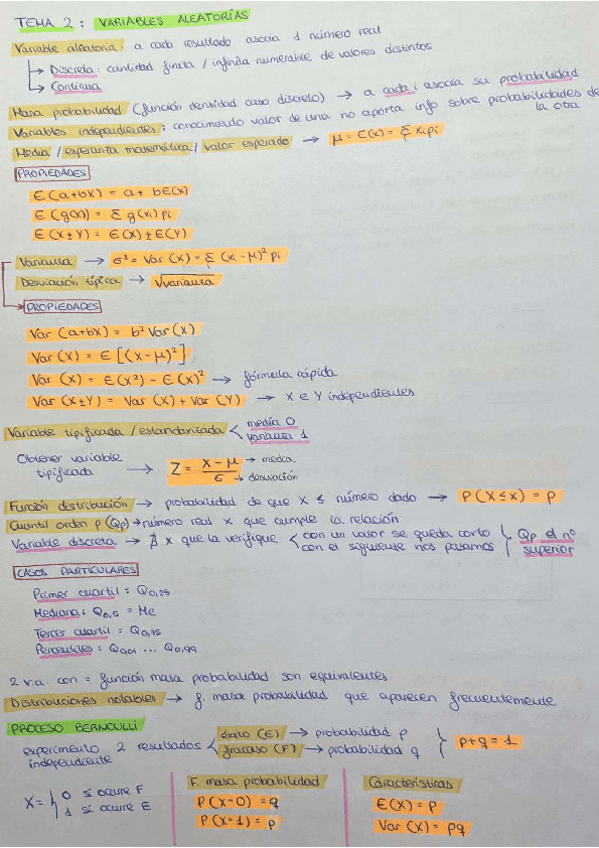 TEMA 2: VARIABLES ALEATORIAS
Variable aleatoria: a cada resultado asocia 1 número real
↳ Discreta: cantidad finita / infinita numerable de valores distintos
↳ Continua
Masa probabilidad (función densidad caso discreto) → a cada i asocia su probabilidad
Variables independientes: conocimiento valor de una no aporta info sobre probabilidades de la otra
Media / esperanza matemática / valor esperado → μ = E(X) = Σ xi pi
PROPIEDADES
E(a+bX) = a + bE(X)
E(g(X)) = Σ g(xi) pi
E(X±Y) = E(X) ± E(Y)
Varianza → σ² = Var(X) = Σ (xi - μ)² pi
Desviación típica → √varianza
PROPIEDADES
Var (a+bX) = b² Var(X)
Var (X) = E [(X-μ)²]
Var (X) = E(X²) - E(X)² → fórmula rápida
Var (X±Y) = Var(X) + Var(Y) → X e Y independientes
Variable tipificada / estandarizada < media 0
varianza 1
Obtener variable tipificada → Z = X-μ / σ → media
→ desviación
Función distribución → probabilidad de que X ≤ número dado → P(X≤x) = p
Cuantil orden p (Qp) → número real x que cumple la relación
Variable discreta → ∄ x que la verifique < con un valor se queda corto } Qp el nº
con el siguiente nos pasamos } superior
CASOS PARTICULARES
Primer cuartil: Q0,25
Mediana: Q0,5 = Me
Tercer cuartil: Q0,75
Percentiles: Q0,01 ... Q0,99
2 v.a. con = función masa probabilidad son equivalentes
Distribuciones notables → f. masa probabilidad que aparecen frecuentemente
PROCESO BERNOULLI
experimento 2 resultados < éxito (E) → probabilidad p } p+q=1
independiente fracaso (F) → probabilidad q
X = { 0 si ocurre F
1 si ocurre E
F. masa probabilidad
P(X=0) = q
P(X=1) = p
Características
E(X) = p
Var(X) = pq